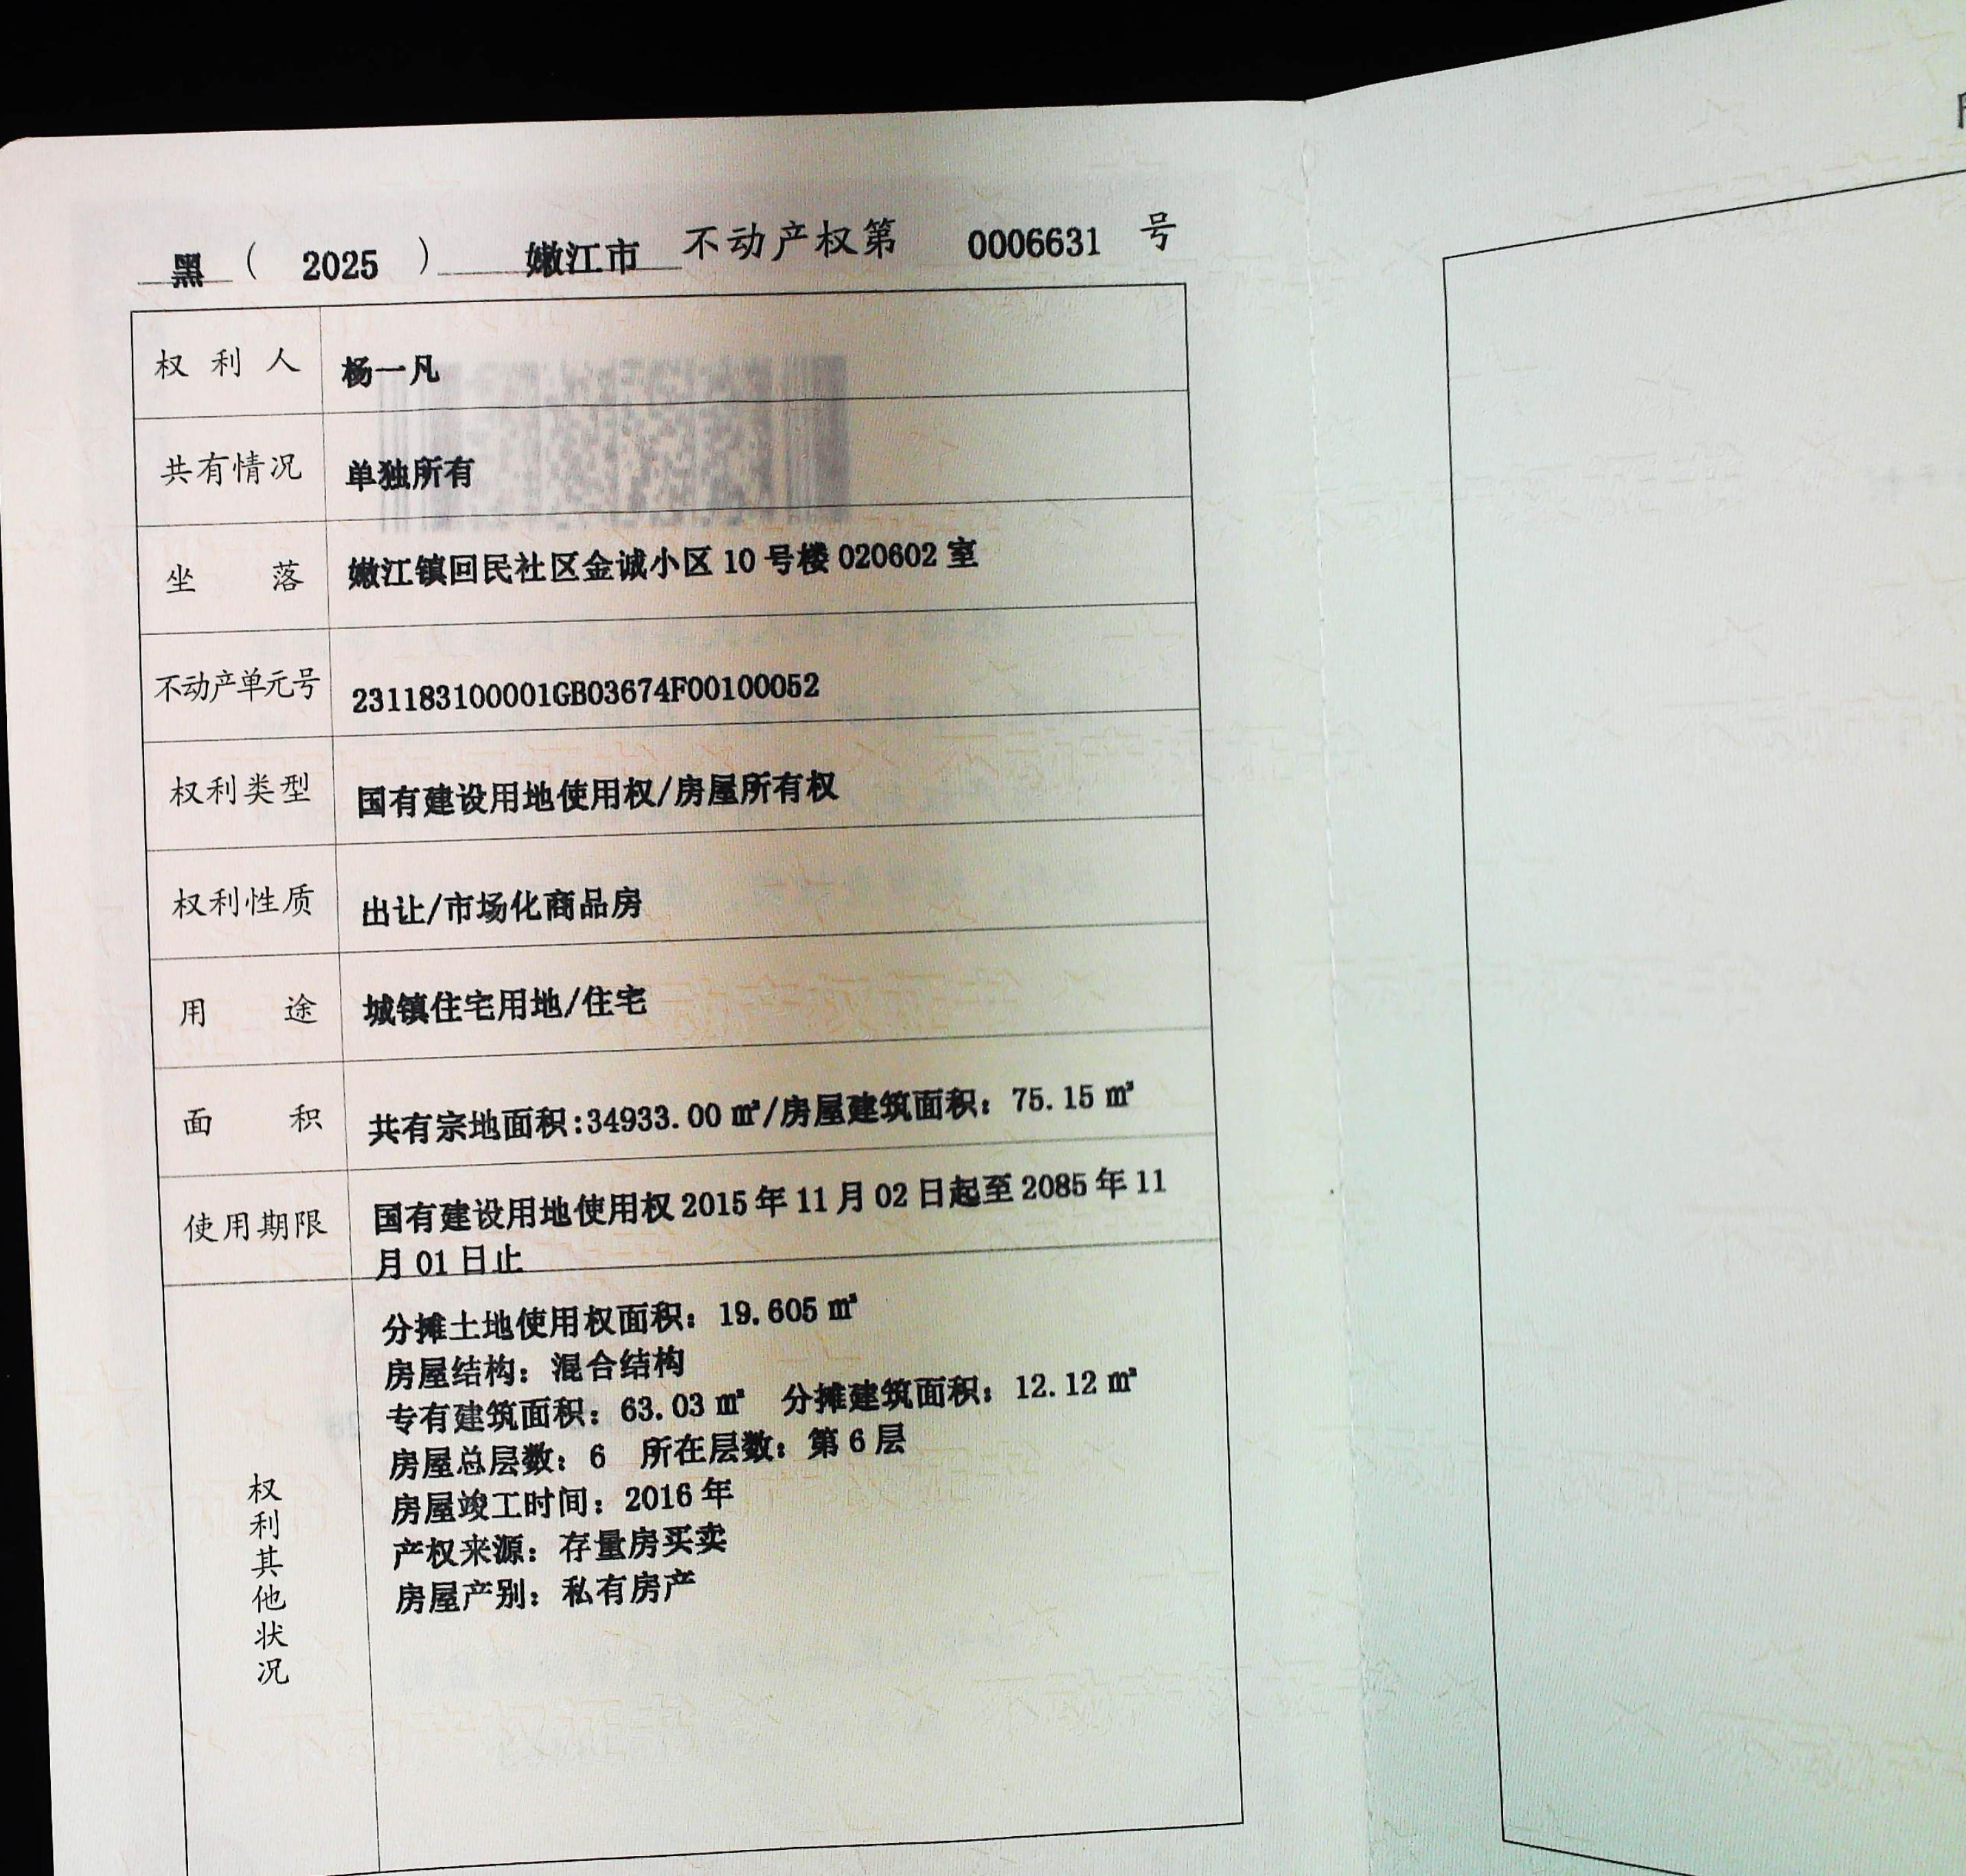 黑（2025）嫩江市不动产权第 0006631 号
权利人 杨一凡
共有情况 单独所有
坐落 嫩江镇回民社区金诚小区 10 号楼 020602 室
不动产单元号 231183100001GB03674F00100052
权利类型 国有建设用地使用权/房屋所有权
权利性质 出让/市场化商品房
用途 城镇住宅用地/住宅
面积 共有宗地面积:34933.00 ㎡/房屋建筑面积：75.15 ㎡
使用期限 国有建设用地使用权 2015 年 11 月 02 日起至 2085 年 11
月 01 日止
权利其他状况
分摊土地使用权面积：19.605 ㎡
房屋结构：混合结构
专有建筑面积：63.03 ㎡ 分摊建筑面积：12.12 ㎡
房屋总层数：6 所在层数：第 6 层
房屋竣工时间：2016 年
产权来源：存量房买卖
房屋产别：私有房产